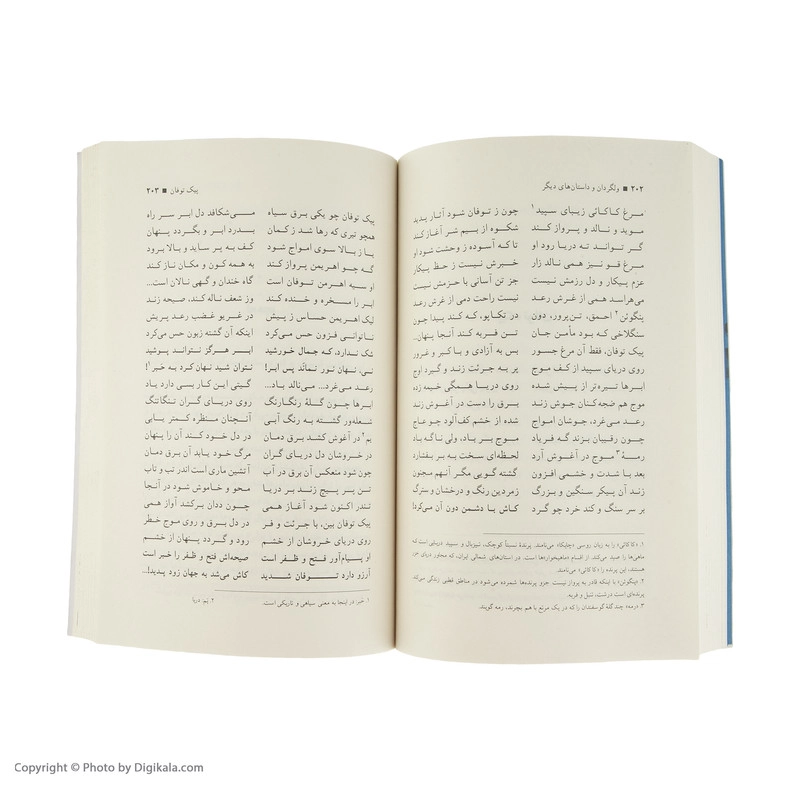 ۲۰۲ ■ ولگردان و داستان‌های دیگر
مرغ کاکائی زیبای سپید ۱ چون ز توفان شود آثار پدید
موید و نالد و پرواز کند شکوه از بسیم شر آغاز کند
گر تواند ته دریا رود او تا که آسوده ز وحشت شود او
مرغ قو نیز همی نالد زار خبرش نیست ز حظ پیکار
عزم پیکار و دل رزمش نیست جز تن آسانی با حزمش نیست
می‌هراسد همی از غرش رعد نیست راحت دمی از غرش رعد
پنگوئن ۲ احمق، تن‌پرور، دون در تکاپو، که کند پیدا چون
سنگلاخی که بود مأمن جان تن فربه کند آنجا پنهان...
پیک توفان، فقط آن مرغ جسور بس به آزادی و با کبر و غرور
روی دریای سپید از کف موج پر به جرئت زند و گیرد اوج
ابرها تیره‌تر از پیش شده روی دریا همگی خیمه زده
موج هم ضجه‌کنان جوش زند برق را دست در آغوش زند
رعد می‌غرد، جوشان امواج شده از خشم کف‌آلود چو عاج
چون رقیبان بزند گه فریاد موج بر باد، ولی ناگه باد
رمهٔ ۳ موج در آغوش آرد لحظه‌ای سخت به بر بفشارد
بعد با شدت و خشمی افزون گشته گویی مگر آنهم مجنون
زند آن پیکر سنگین و بزرگ زمردین رنگ و درخشان و سترگ
بر سر سنگ و کند خرد چو گرد کاش با دشمن دون آن می‌کرد!
۱. «کاکائی» را به زبان روسی «چایکا» می‌نامند. پرندهٔ نسبتاً کوچک، تیزبال و سپید دریایی است که
ماهی‌ها را صید می‌کند. از اقسام «ماهیخوار»ها است. در استان‌های شمالی ایران، که مجاور دریای خزر
هستند، این پرنده را «کاکائی» می‌نامند.
۲. «پنگوئن» با اینکه قادر به پرواز نیست جزو پرنده‌ها شمرده می‌شود در مناطق قطبی زندگی می‌کند.
پرنده‌ای است درشت، تنبل و فربه.
۳. «رمه» چند گلهٔ گوسفندان را که در یک مرتع با هم بچرند، رمه گویند.
پیک توفان ■ ۲۰۳
پیک توفان چو یکی برق سیاه می‌شکافد دل ابر سر راه
همچو تیری که رها شد ز کمان بدرد ابر و بگردد پنهان
یا ز بالا سوی امواج شود کف به پر ساید و بالا برود
گه چو اهریمن پرواز کند به همه کون و مکان ناز کند
او سیه اهرمن توفان است گاه خندان و گهی نالان است...
ابر را مسخره و خنده کند وز شعف ناله کند، صیحه زند
لیک اهریمن حساس ز پیش در غریو غضب رعد پریش
ناتوانی فزون حس می‌کرد اینکه آن گشته زبون حس می‌کرد
شک ندارد، که جمال خورشید ابر هرگز نتواند پوشید
نی، نهان نور نماند پس ابر! نتوان شید نهان کرد به خبر ۱!
رعد می‌غرد... می‌نالد باد... گیتی این کار بسی دارد یاد
ابرها چون گلهٔ رنگارنگ روی دریای گران تنگاتنگ
شعله‌ور گشته به رنگ آبی آنچنان منظره کمتر یابی
یم ۲ در آغوش کشد برق دمان در دل خود کند آن را پنهان
در خروشان دل دریای گران مرگ خود یابد آن برق دمان
چون شود منعکس آن برق در آب آتشین ماری است اندر تب و تاب
تن پر پیچ زند بر دریا محو و خاموش شود در آنجا
تندر اکنون شود آغاز همی چون ددان برکشد آواز همی
پیک توفان بین، با جرئت و فر در دل برق و روی موج خطر
روی دریای خروشان از خشم رود و گردد پنهان از چشم
او پیام‌آور فتح و ظفر است صیحه‌اش فتح و ظفر را خبر است
آرزو دارد توفان شدید کاش می‌شد به جهان زود پدید!...
۱. خبر: در اینجا به معنی سیاهی و تاریکی است. ۲. یَم: دریا
Copyright © Photo by Digikala.com